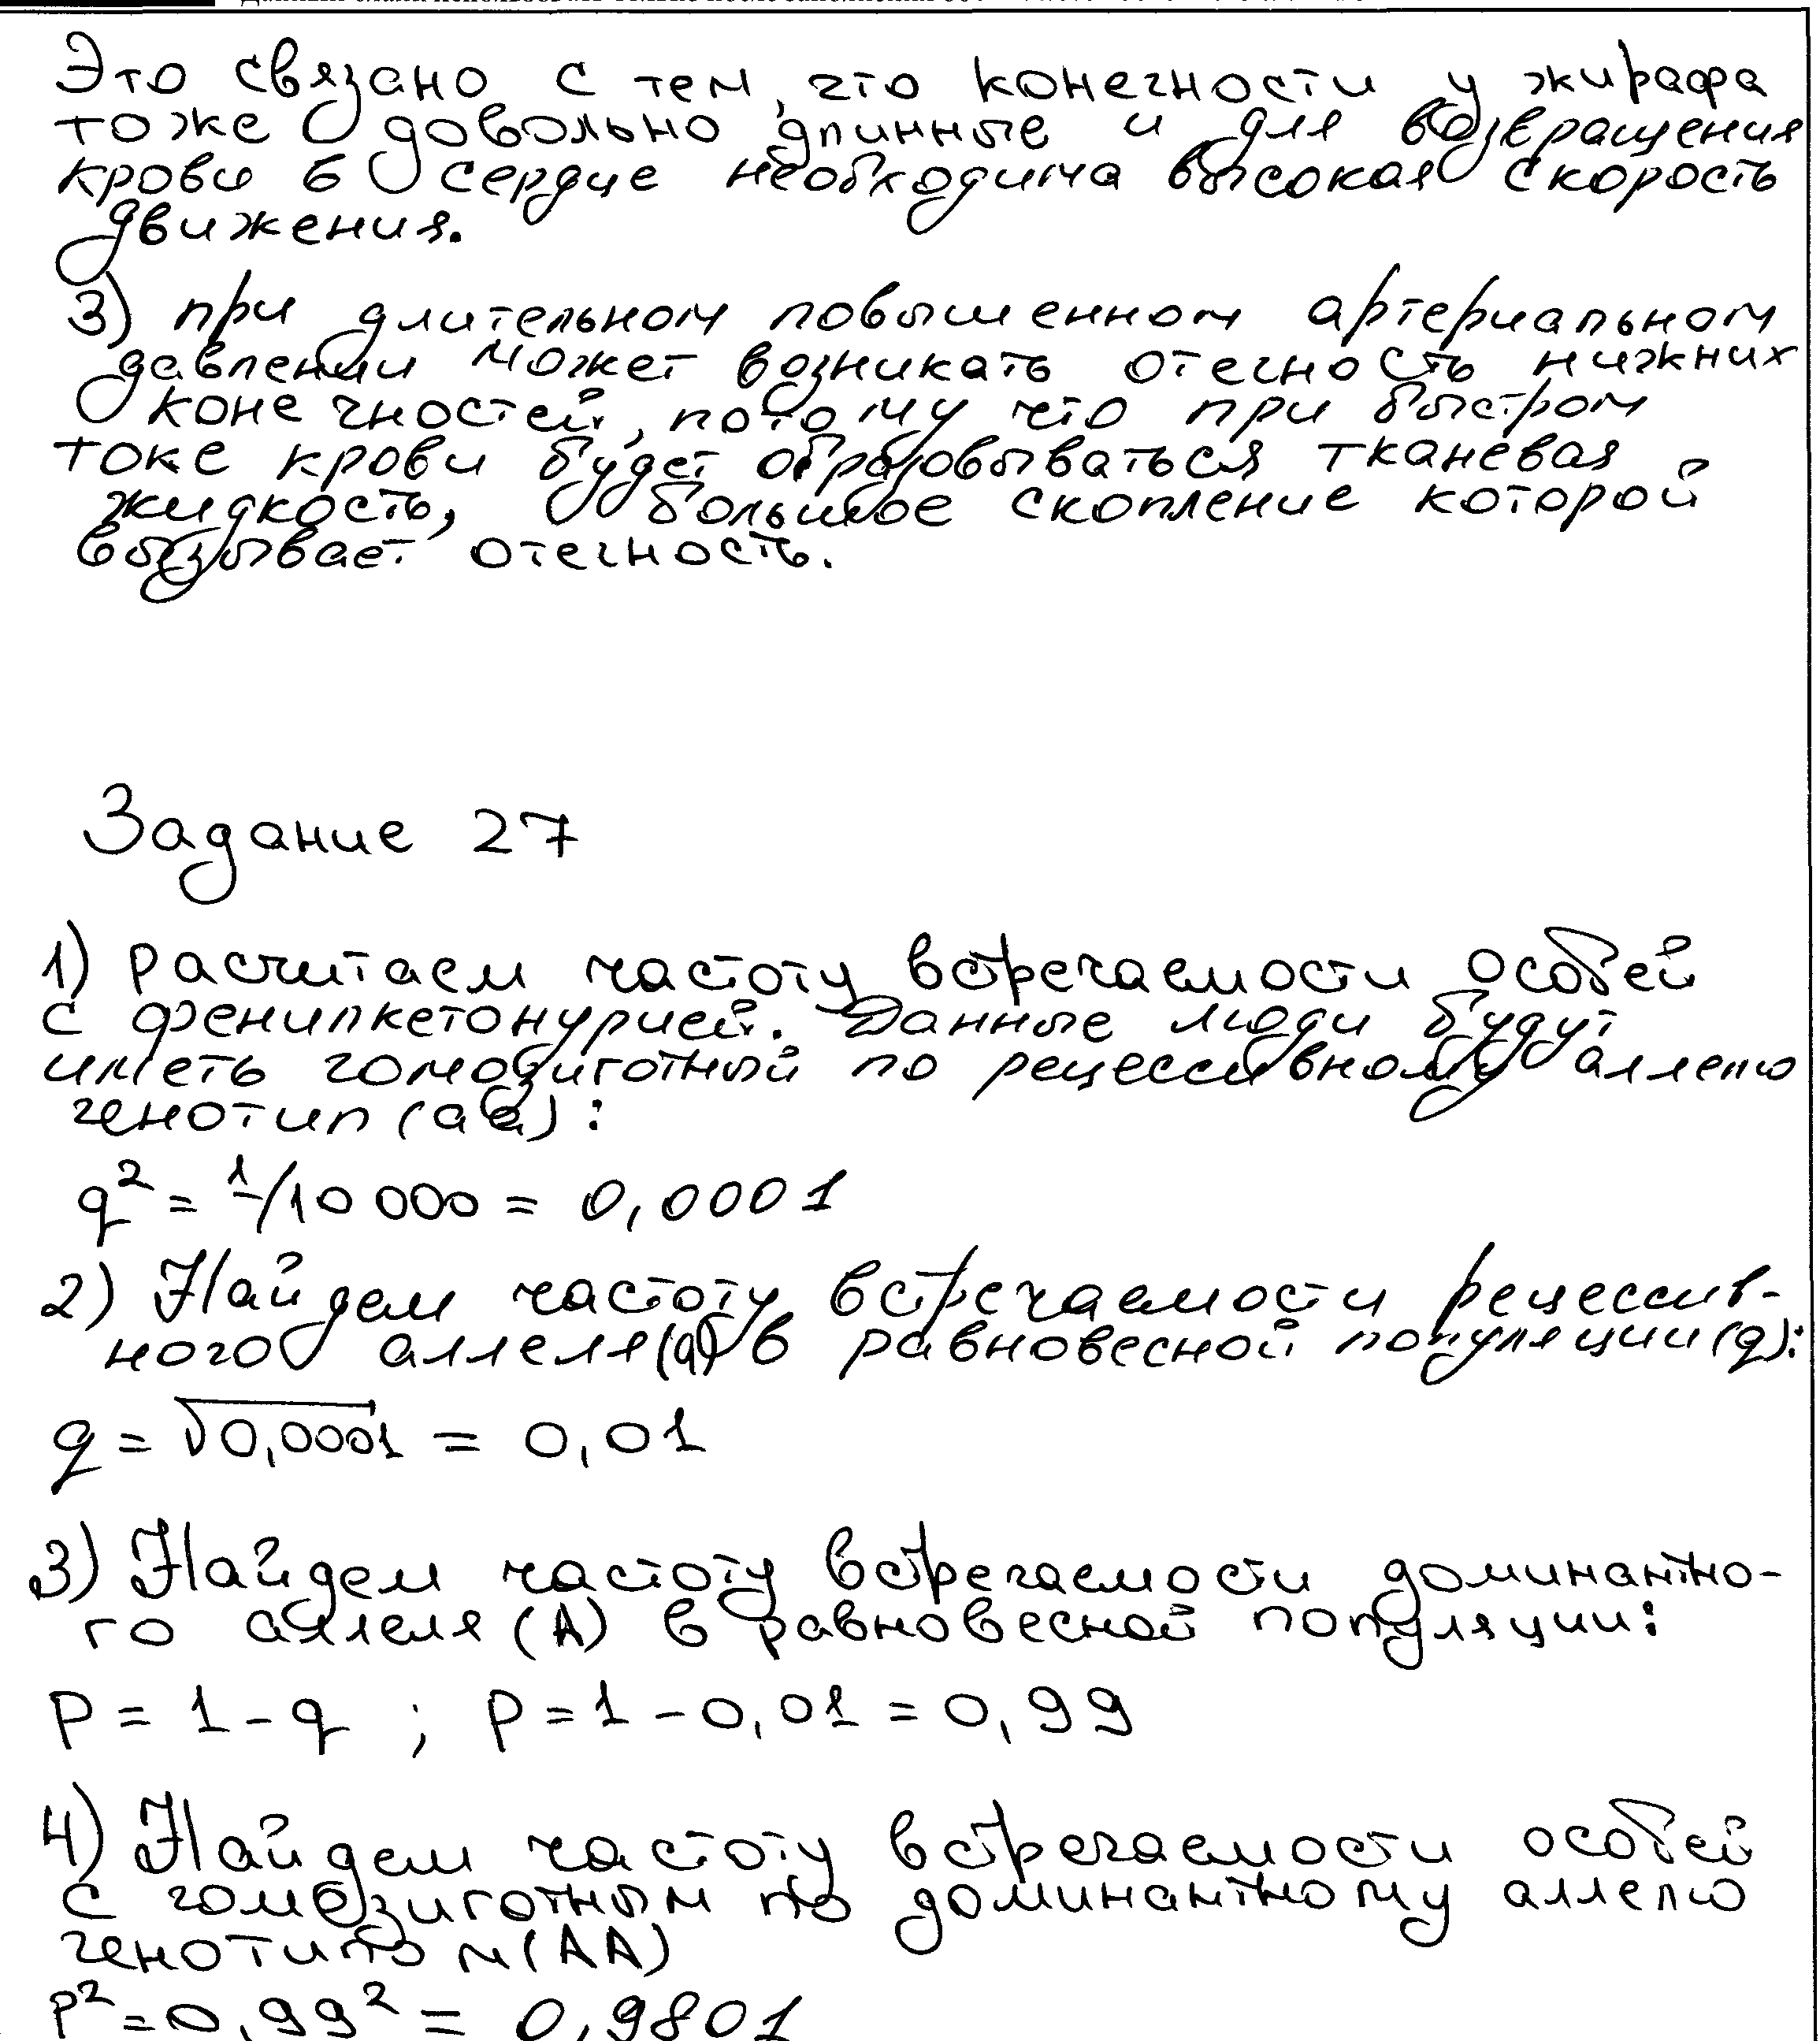 Это связано с тем, что конечности у жирафа
тоже довольно длинные и для возвращения
крови в сердце необходима высокая скорость
движения.
3) при длительном повышенном артериальном
давлении может возникать отечность нижних
конечностей, потому что при быстром
токе крови будет обрабовываться тканевая
жидкость, большое скопление которой
вызывает отечность.
Задание 27
1) Расчитаем частоту встречаемости особей
с фенилкетонурией. Данные люди будут
иметь гомозиготный по рецессивному аллелю
генотип (аа):
q² = 1/10 000 = 0,0001
2) Найдем частоту встречаемости рецессив-
ного аллеля (а) в равновесной популяции (q):
q = √0,0001 = 0,01
3) Найдем частоту встречаемости доминантно-
го аллеля (А) в равновесной популяции:
p = 1 - q ; p = 1 - 0,01 = 0,99
4) Найдем частоту встречаемости особей
с гомозиготным по доминантному аллелю
генотипом (АА)
p² = 0,99² = 0,9801